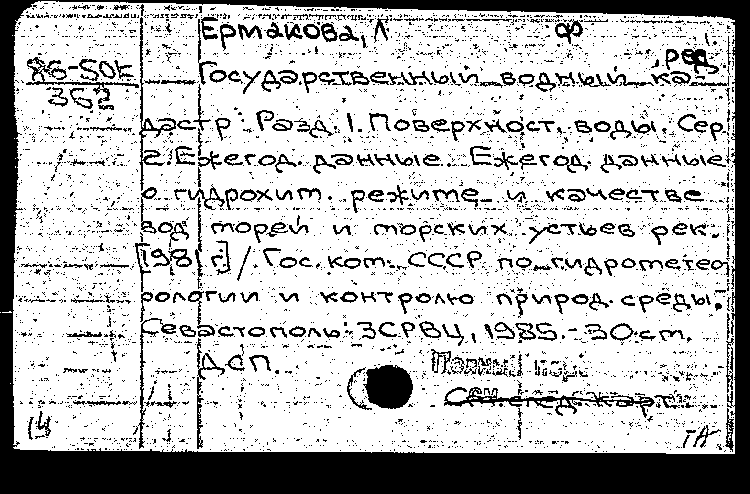 Ермакова, Л
ф
, ред.
86-50К
362
Государственный водный ка-
дастр: Разд. 1. Поверхност. воды. Сер
2. Ежегод. данные. Ежегод. данные
о гидрохим. режиме и качестве
вод морей и морских устьев рек.
[1981 г.] / Гос. ком. СССР по гидрометео
рологии и контролю природ. среды.-
Севастополь: ЗСРВЦ, 1985.- 30 см.
ДСП.
Полный
См. след. карт.
14
ТА